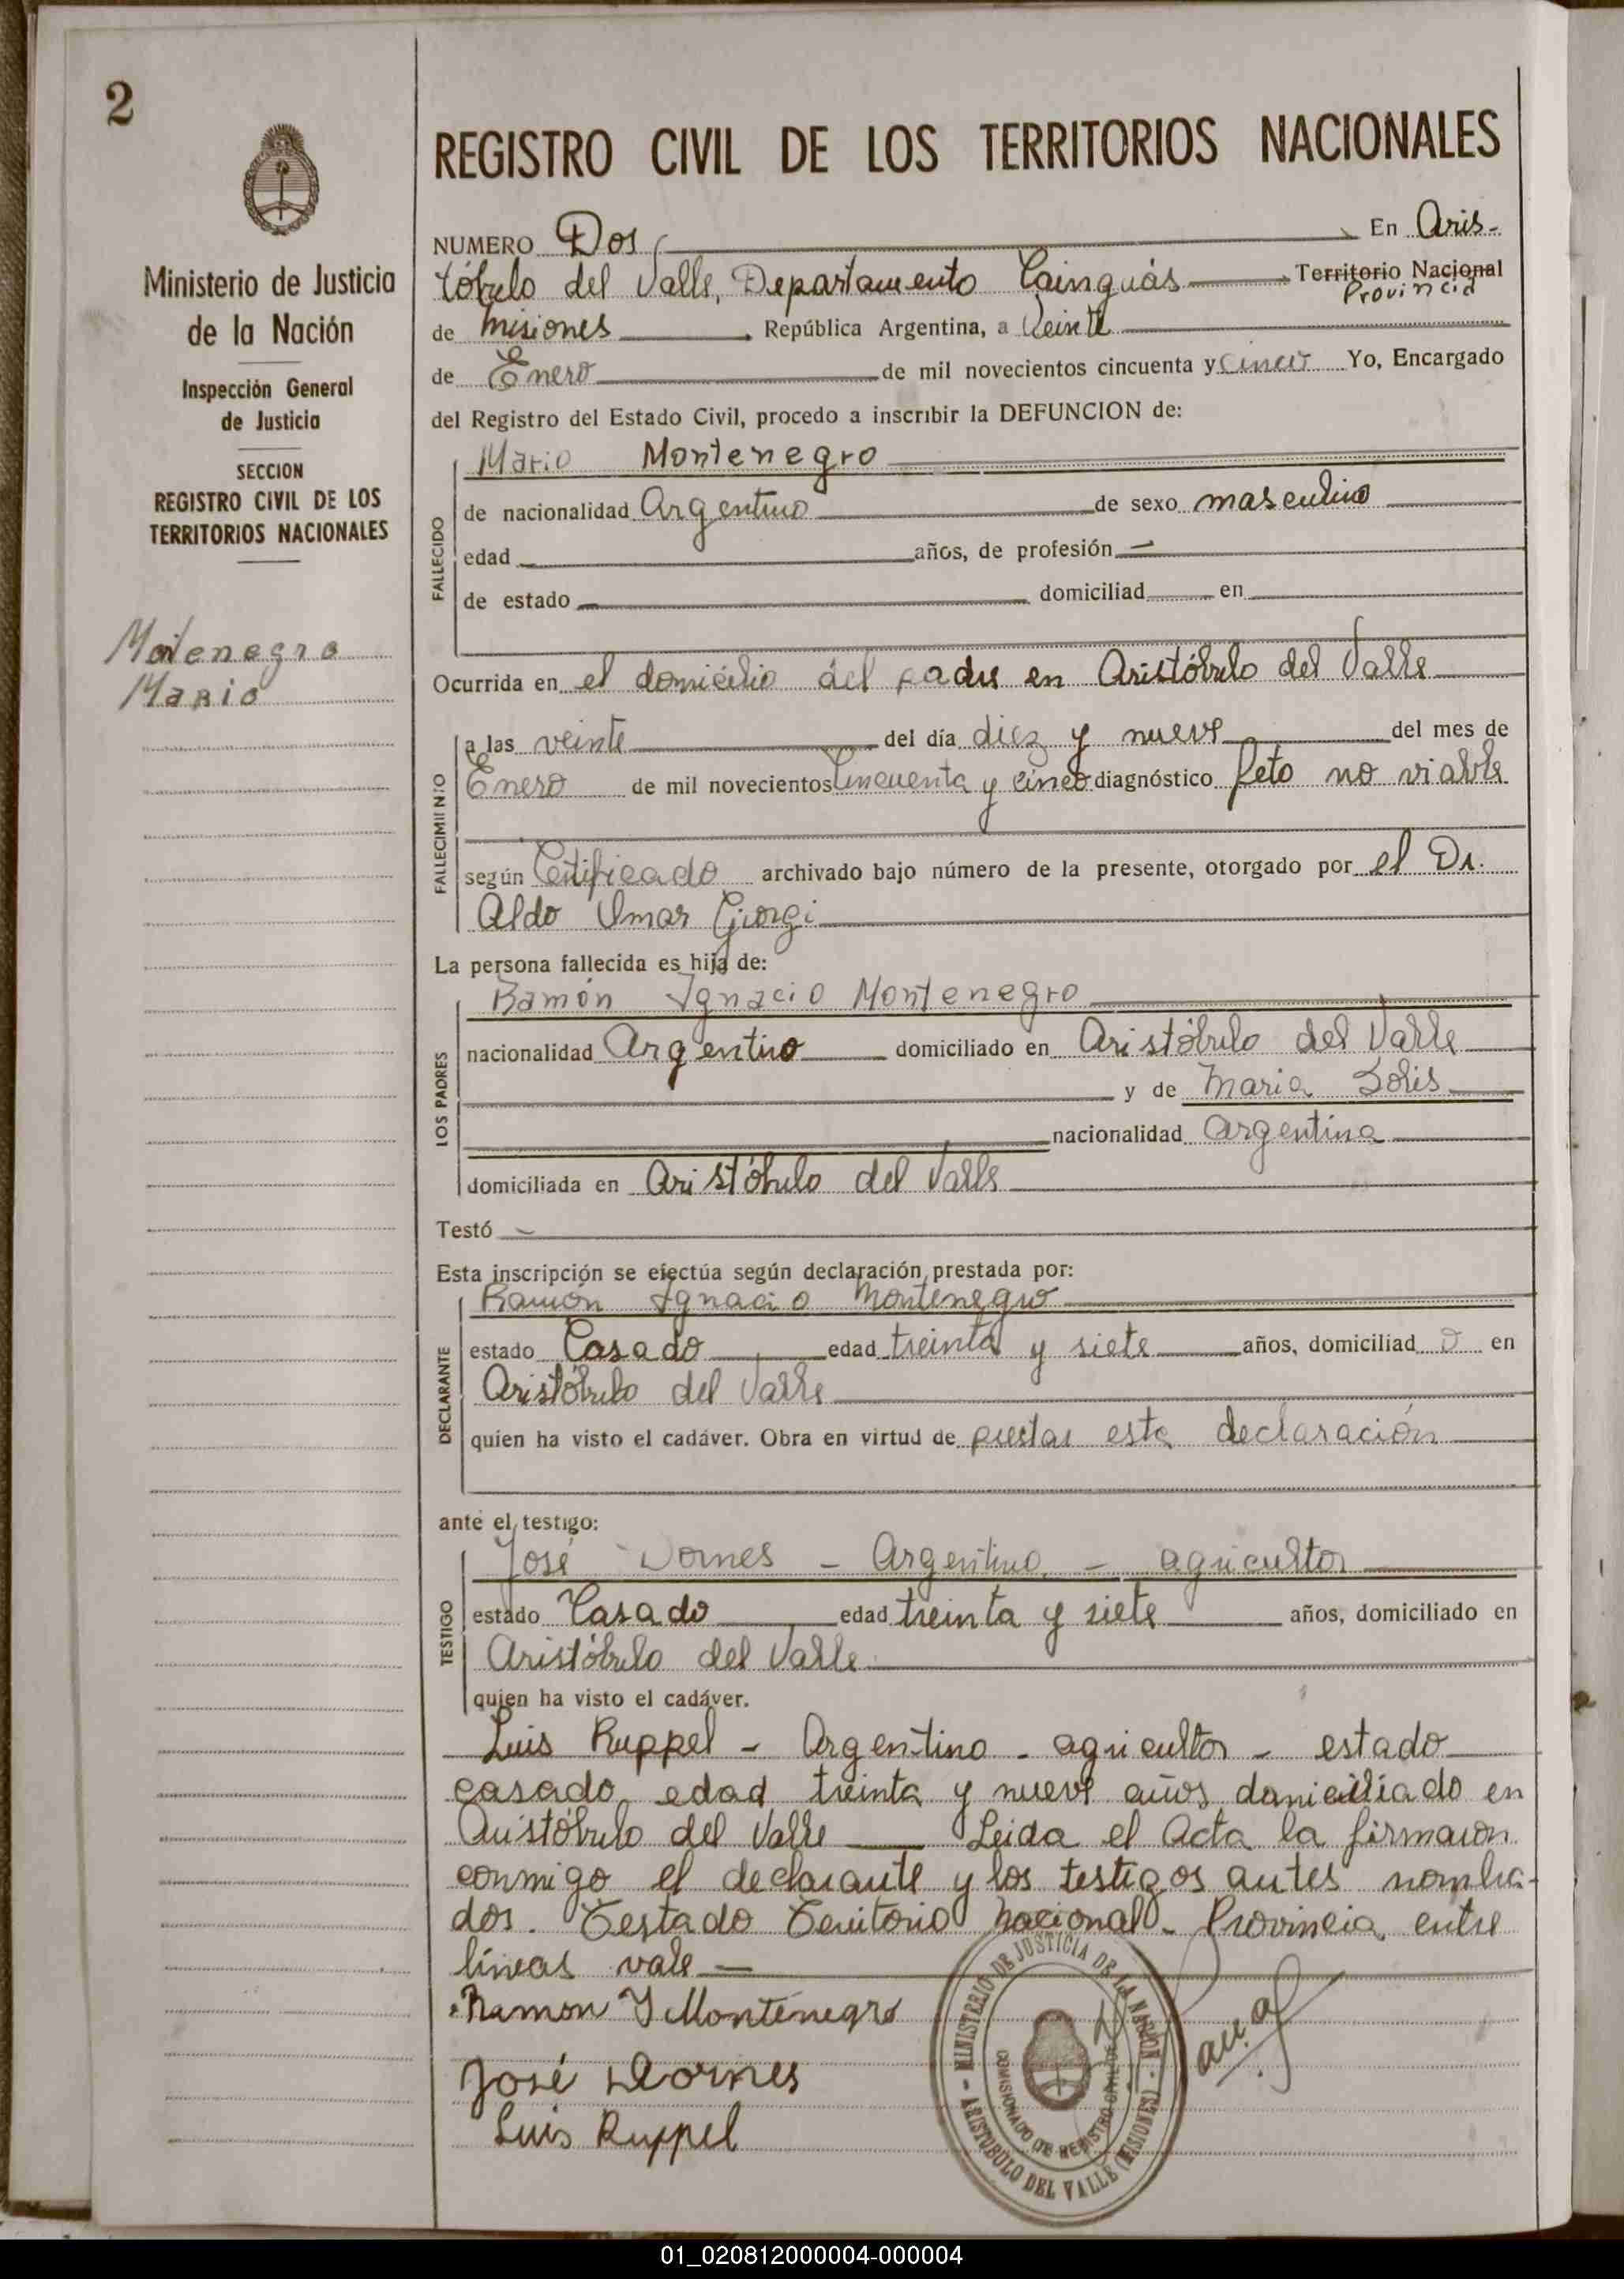 2
Ministerio de Justicia
de la Nación
Inspección General
de Justicia
SECCION
REGISTRO CIVIL DE LOS
TERRITORIOS NACIONALES
Montenegro
Mario
REGISTRO CIVIL DE LOS TERRITORIOS NACIONALES
NUMERO Dos En Aris-
tóbulo del Valle, Departamento Cainguás Territorio Nacional
Provincia
de Misiones República Argentina, a Veinte
de Enero de mil novecientos cincuenta y cinco Yo, Encargado
del Registro del Estado Civil, procedo a inscribir la DEFUNCION de:
FALLECIDO
Mario Montenegro
de nacionalidad Argentino de sexo masculino
edad años, de profesión —
de estado domiciliad en
Ocurrida en el domicilio del padre en Aristóbulo del Valle
FALLECIMIENTO
a las veinte del día diez y nueve del mes de
Enero de mil novecientos cincuenta y cinco diagnóstico feto no viable
según Certificado archivado bajo número de la presente, otorgado por el Dr.
Aldo Omar Giorgi
La persona fallecida es hija de:
LOS PADRES
Ramón Ignacio Montenegro
nacionalidad Argentino domiciliado en Aristóbulo del Valle
y de Maria Solis
nacionalidad Argentina
domiciliada en Aristóbulo del Valle
Testó —
Esta inscripción se efectúa según declaración prestada por:
DECLARANTE
Ramón Ignacio Montenegro
estado Casado edad treinta y siete años, domiciliad o en
Aristóbulo del Valle
quien ha visto el cadáver. Obra en virtud de prestar esta declaración
ante el testigo:
TESTIGO
José Dornes - Argentino - agricultor
estado Casado edad treinta y siete años, domiciliado en
Aristóbulo del Valle
quien ha visto el cadáver.
Luis Ruppel - Argentino - agricultor - estado
casado, edad treinta y nueve años domiciliado en
Aristóbulo del Valle — Leida el Acta la firmaron
conmigo el declarante y los testigos antes nombra-
dos. Testado Territorio Nacional - Provincia, entre
líneas vale —
Ramon I Montenegro
José Dornes
Luis Ruppel
MINISTERIO DE JUSTICIA DE LA NACION
COMISIONADO DE REGISTRO CIVIL
ARISTOBULO DEL VALLE (MISIONES)
01_020812000004-000004